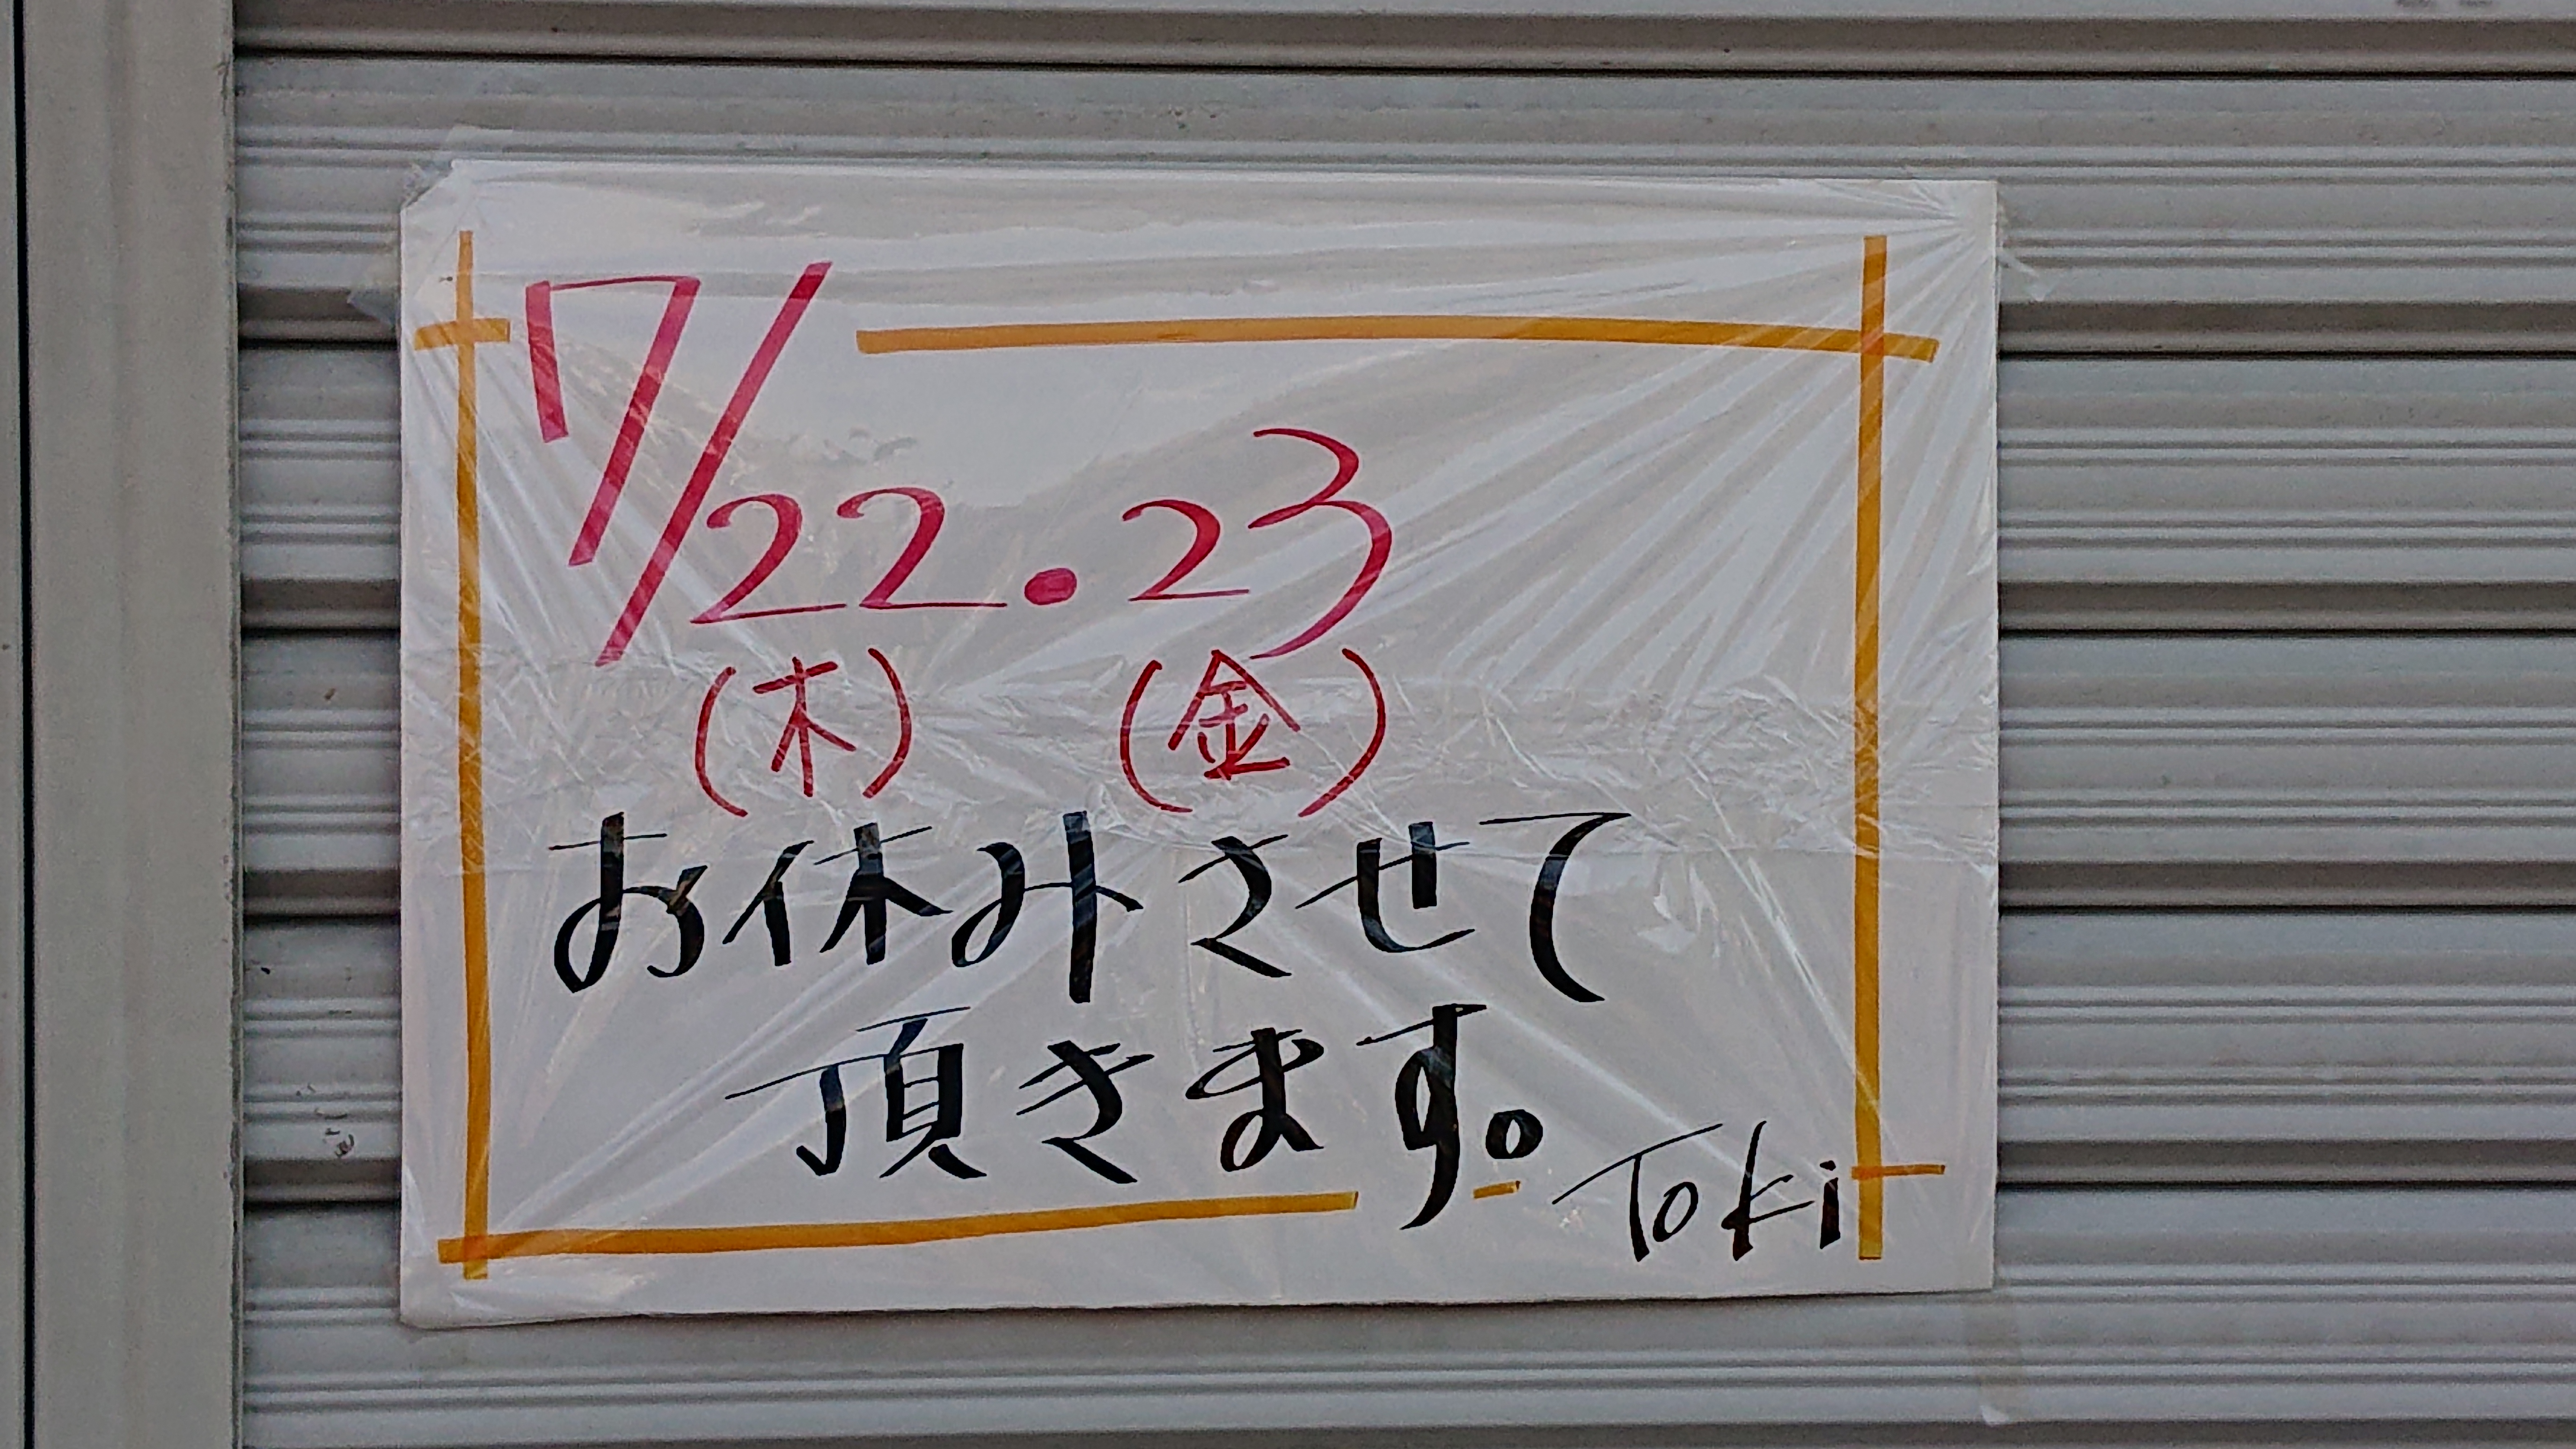 7/22.23
(木) (金)
お休みさせて
頂きます。
Toki